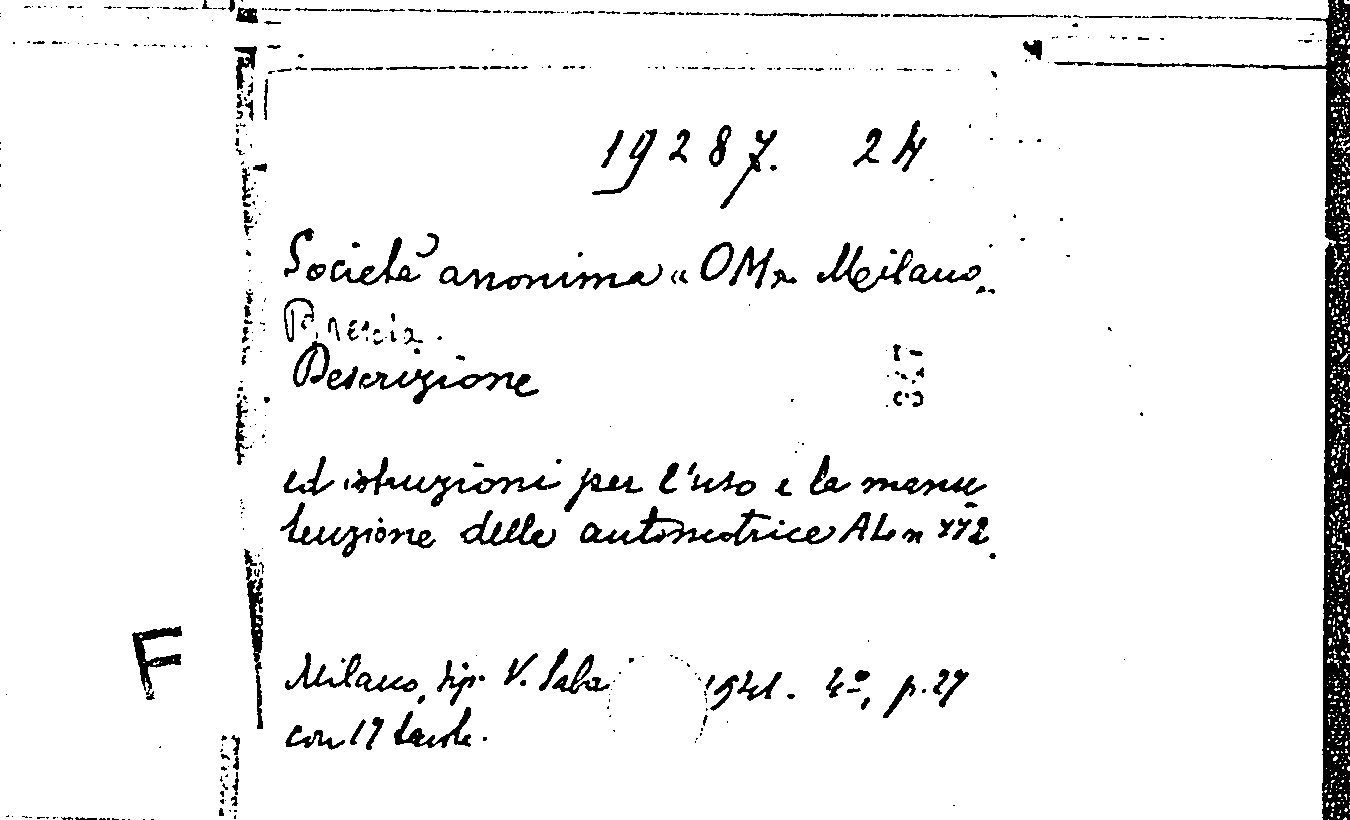 19287. 24
Società anonima « OM». Milano
Brescia.
Descrizione
ed istruzioni per l'uso e la manu
tenzione delle automotrice ALn 772.
F
Milano, tip. V. 1941. 4º, p. 27
con 17 tavole.